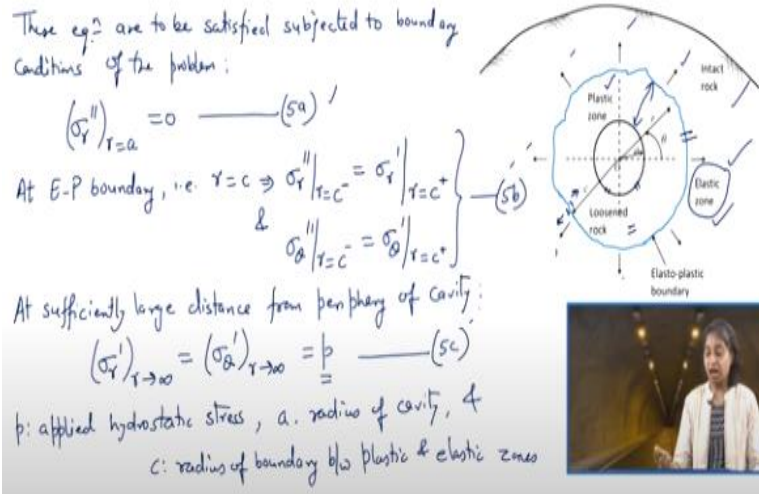 These eqns are to be satisfied subjected to boundary
Conditions of the problem:
(σr'')r=a = 0 ——— (5a)
At E-P boundary, i.e. r=c ⇒ σr''|r=c⁻ = σr'|r=c⁺
& σθ''|r=c⁻ = σθ'|r=c⁺ } —(5b)
At sufficiently large distance from periphery of cavity:
(σr')r→∞ = (σθ')r→∞ = p ——— (5c)
p: applied hydrostatic stress, a: radius of cavity, &
c: radius of boundary b/w plastic & elastic zones
Intact
rock
Plastic
zone
r
θ
Elastic
zone
Loosened
rock
Elasto-plastic
boundary